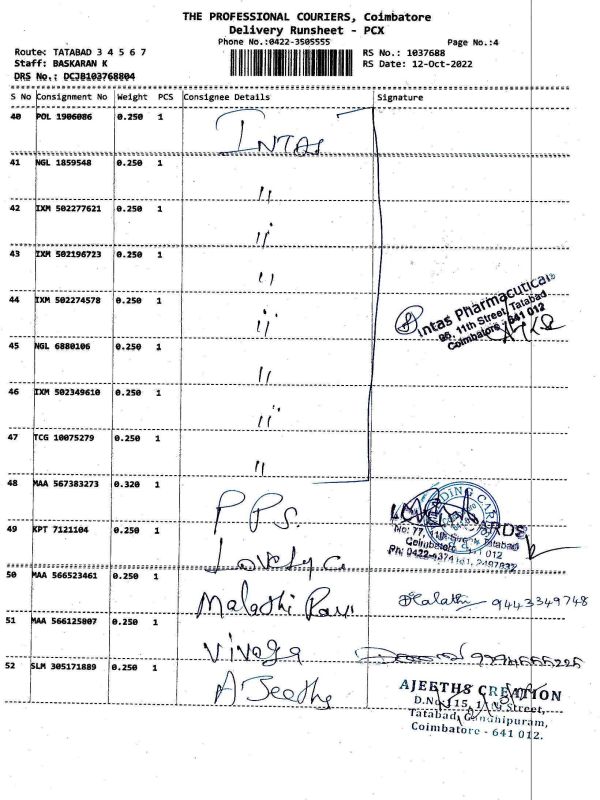 THE PROFESSIONAL COURIERS, Coimbatore
Delivery Runsheet - PCX
Phone No.:0422-3505555
Page No.:4
Route: TATABAD 3 4 5 6 7
RS No.: 1037688
Staff: BASKARAN K
RS Date: 12-Oct-2022
DRS No.: DCJB103768804
S No Consignment No Weight PCS Consignee Details Signature
40 POL 1906086 0.250 1 INTAS
41 NGL 1859548 0.250 1 "
42 IXM 502277621 0.250 1 "
43 IXM 502196723 0.250 1 "
44 IXM 502274578 0.250 1 "
Intas Pharmaceutical
99, 11th Street, Tatabad
Coimbatore - 641 012
45 NGL 6880106 0.250 1 "
46 IXM 502349610 0.250 1 "
47 TCG 10075279 0.250 1 "
48 MAA 567383273 0.320 1 PPS.
CARDS
No: 77, 11th Street, Tatabad
Coimbatore 641 012
49 KPT 7121104 0.250 1
50 MAA 566523461 0.250 1 Malathi Ravi Malathi 9443349748
51 MAA 566125807 0.250 1 Vivaga
52 SLM 305171889 0.250 1 AJeeths
AJEETHS CREATION
D.No.115, 11th Street,
Tatabad, Gandhipuram,
Coimbatore - 641 012.